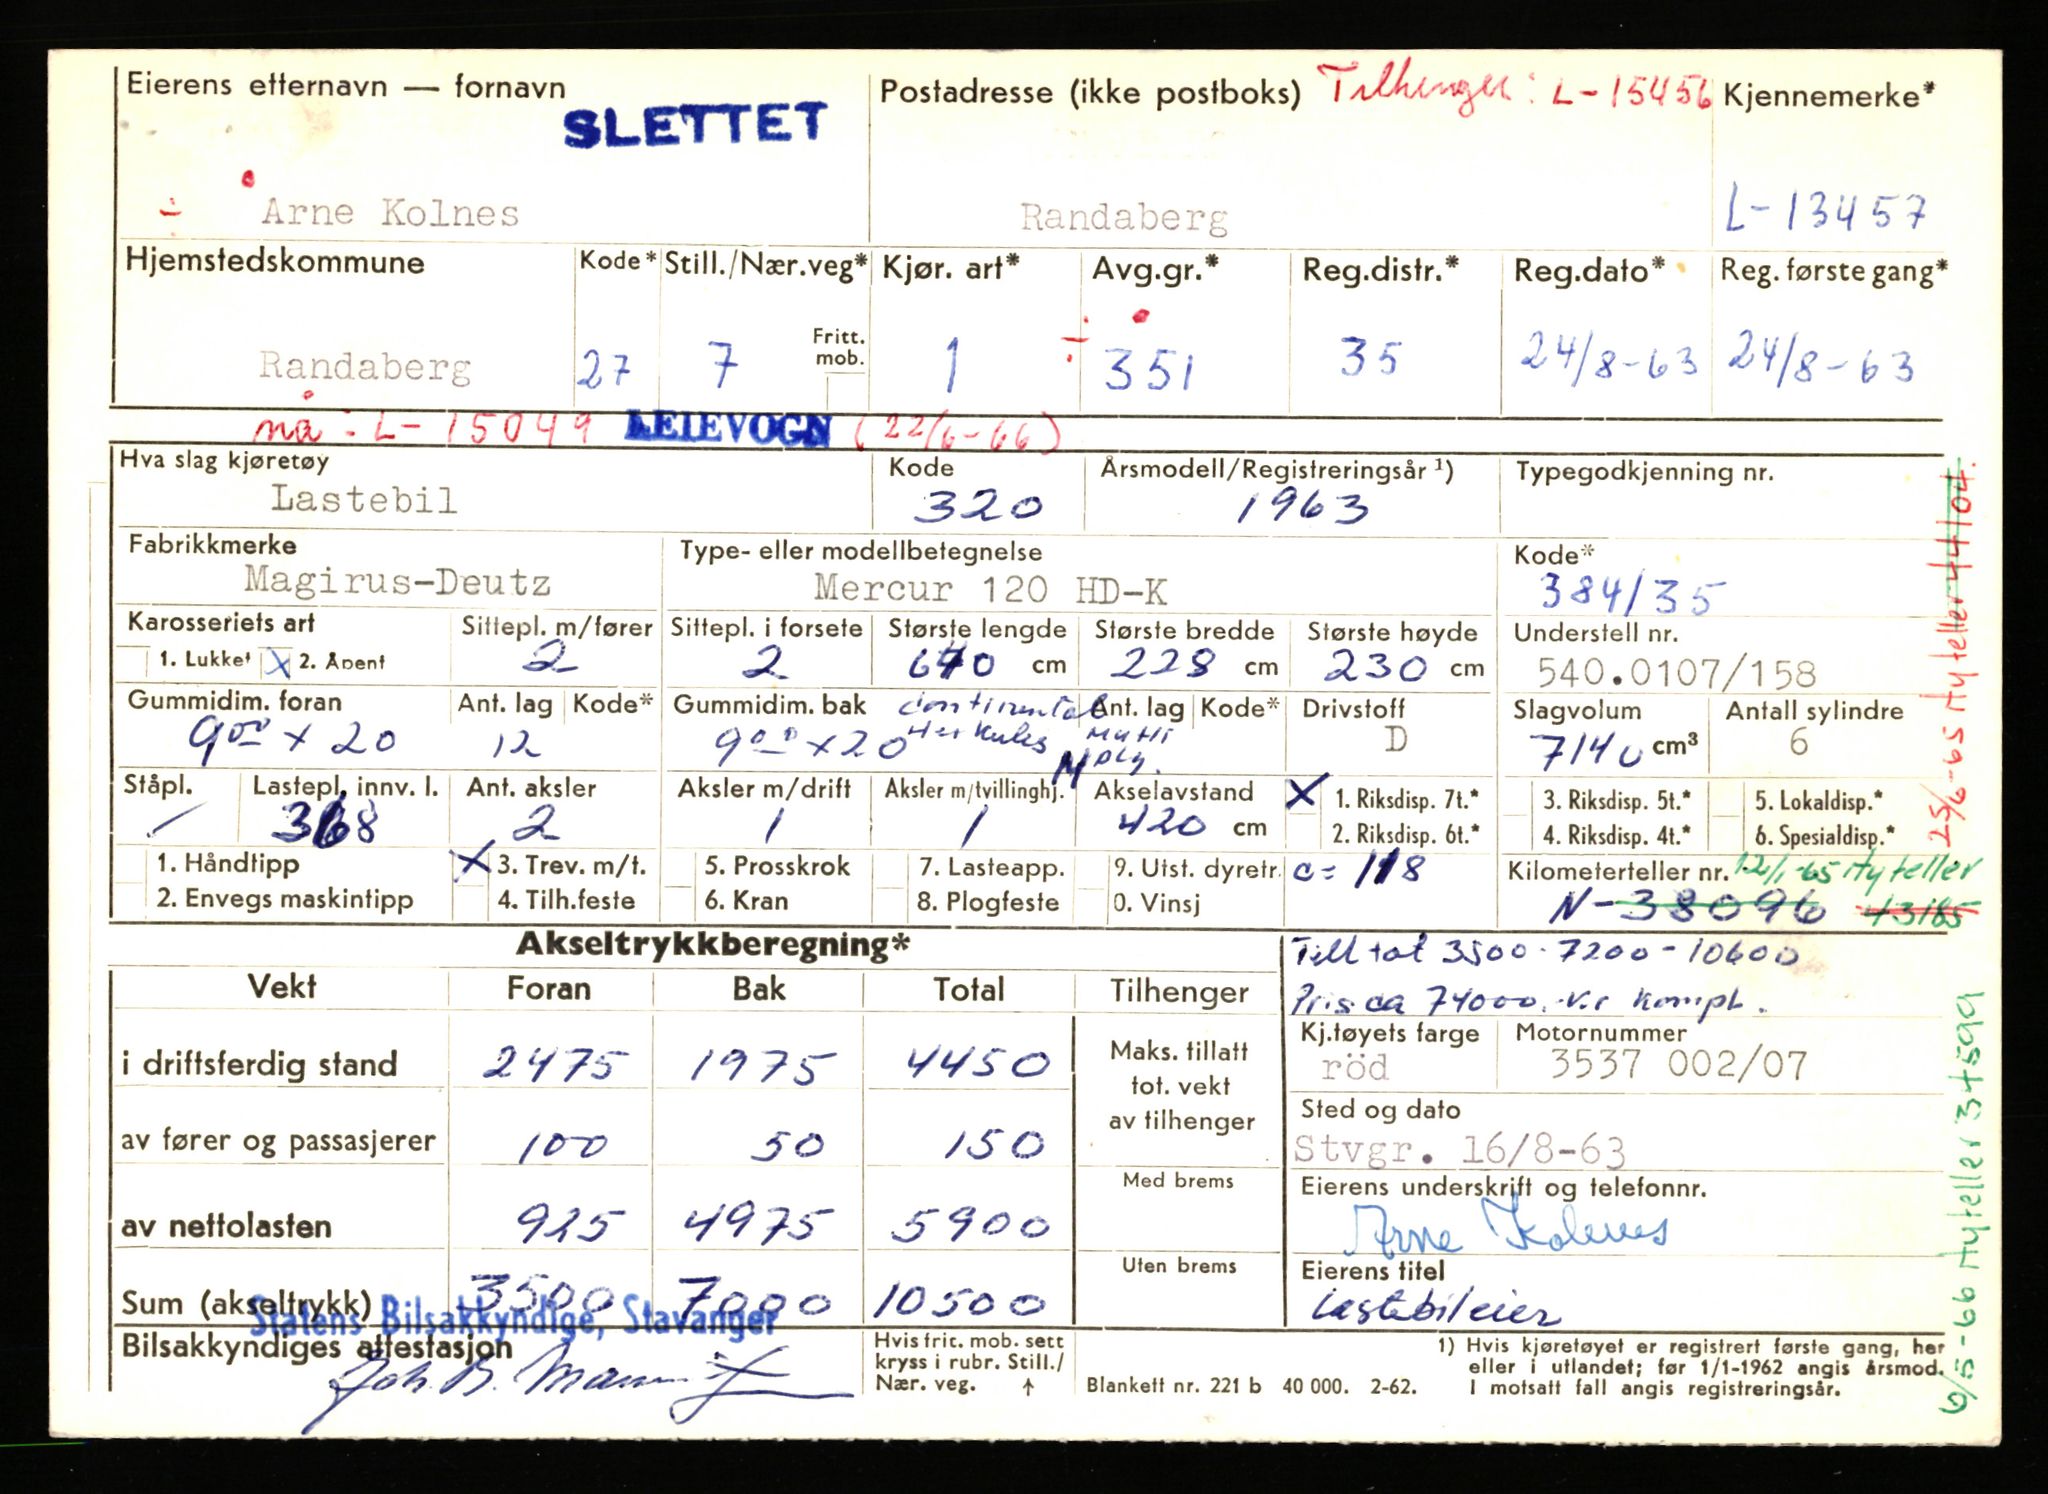 Eierens etternavn — fornavn
SLETTET
Postadresse (ikke postboks)
Tilhenger: L-15456
Kjennemerke*
÷ Arne Kolnes
Randaberg
L-13457
Hjemstedskommune Kode* Still./Nær.veg* Kjør. art* Avg.gr.* Reg.distr.* Reg.dato* Reg. første gang*
Fritt. mob.
Randaberg 27 7 1 ÷ 351 35 24/8-63 24/8-63
nå: L-15049 LEIEVOGN (22/6-66)
Hva slag kjøretøy Kode Årsmodell/Registreringsår ¹) Typegodkjenning nr.
Lastebil 320 1963
Fabrikkmerke Type- eller modellbetegnelse Kode*
Magirus-Deutz Mercur 120 HD-K 384/35
Karosseriets art Sittepl. m/fører Sittepl. i forsete Største lengde Største bredde Største høyde Understell nr.
1. Lukket X 2. Åpent 2 2 640 cm 228 cm 230 cm 540.0107/158
Gummidim. foran Ant. lag Kode* Gummidim. bak Ant. lag Kode* Drivstoff Slagvolum Antall sylindre
Continental
9.00 x 20 12 9.00 x 20 D 7140 cm³ 6
Ståpl. Lastepl. innv. l. Ant. aksler Aksler m/drift Aksler m/tvillinghj. Akselavstand X 1. Riksdisp. 7t.* 3. Riksdisp. 5t.* 5. Lokaldisp.*
/ 368 2 1 1 420 cm 2. Riksdisp. 6t.* 4. Riksdisp. 4t.* 6. Spesialdisp.*
1. Håndtipp X 3. Trev. m/t. 5. Prosskrok 7. Lasteapp. 9. Utst. dyretr. c= 118 Kilometerteller nr. 12/1-65 Ny teller
2. Envegs maskintipp 4. Tilh.feste 6. Kran 8. Plogfeste 0. Vinsj N-38096 43185
25/6-65 Ny teller 44104.
Akseltrykkberegning*
Till tot 3500-7200-10600
Vekt Foran Bak Total Tilhenger
Pris ca 74000.
i driftsferdig stand 2475 1975 4450
Maks. tillatt tot. vekt av tilhenger
Kj.tøyets farge Motornummer
röd 3537 002/07
av fører og passasjerer 100 50 150
Sted og dato
Stvgr. 16/8-63
Med brems
Eierens underskrift og telefonnr.
av nettolasten 925 4975 5900
Arne Kolnes
Uten brems
Eierens titel
Sum (akseltrykk) 3500 7000 10500
Lastebileier
Statens Bilsakkyndige, Stavanger
Bilsakkyndiges attestasjon
Hvis frit. mob. sett
kryss i rubr. Still./
Nær. veg. ↑
Blankett nr. 221 b 40 000. 2-62.
1) Hvis kjøretøyet er registrert første gang, her
eller i utlandet; før 1/1-1962 angis årsmod.
I motsatt fall angis registreringsår.
6/5-66 Ny teller 34599